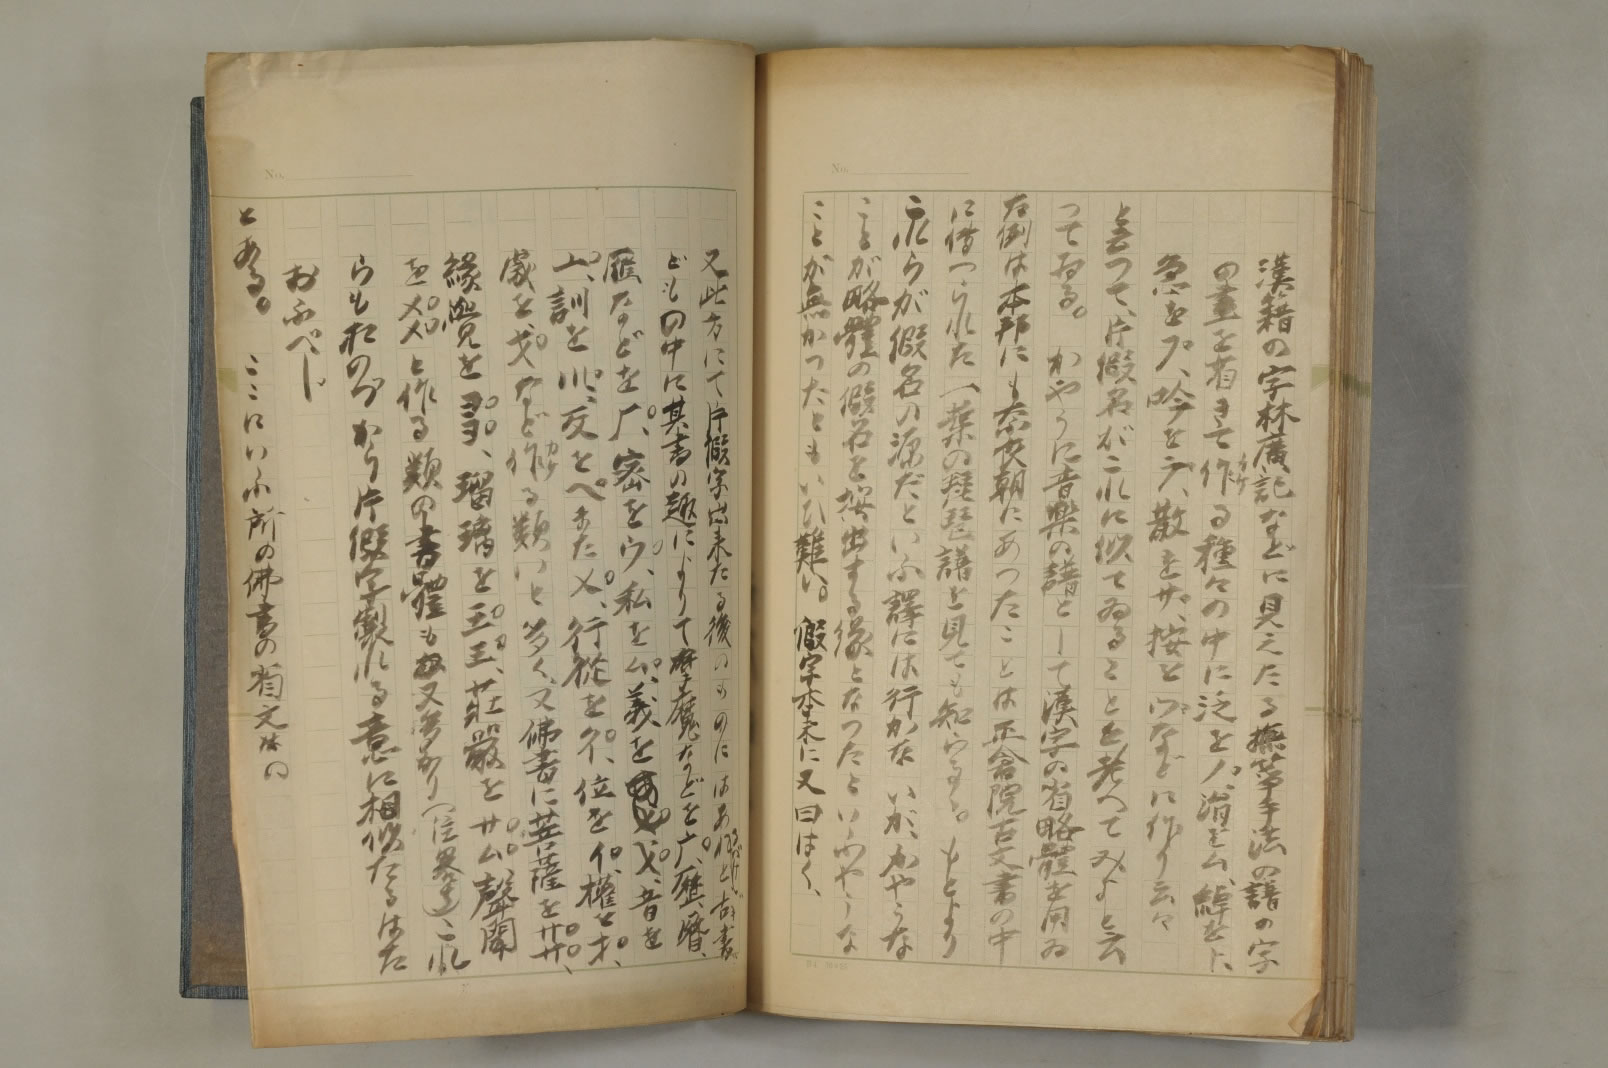 漢籍の字林廣記などに見えたる撫箏手法の譜の字
の畫を省きて作る種々の中に泛をノ、涓をム、綽をト、
急をク、吟をラ、散をサ、按をウなどに作り云々
と云つて、片假名がこれに似てゐることを考へてみよと云
つてゐる。かやうに音樂の譜として漢字の省略體を用ゐ
た例は本邦にも奈良朝にあつたことは正倉院古文書の中
に傳つられた一葉の琵琶譜を見ても知らるゝ。もとより
これらが假名の源だといふ譯には行かないが、かやうな
ことが略體の假名を案出する縁となつたといふやうな
ことが無かつたともいひ難い。假字本末に又曰はく、
又此方にて片假字出来たる後のものにはあれど古書
どもの中に其書の趣によりて摩魔などを广、歴、暦、
雁などを厂、密をウ、私をム、義を乂、音を
亠、訓を川、反をヘまた乂、行從を彳、位を亻、權を才、
歳を戈など作る類いと多く、又佛書に菩薩を𦬇、
縁覺をヨヨ、瑠璃を王王、莊嚴をサム、聲聞
を乂乂と作る類の書體も又多かり(信景速)これ
らもおのづから片假字製れる意に相似たるはた
おふべし
とある。ここにいふ所の佛書の省文は
No.
No.